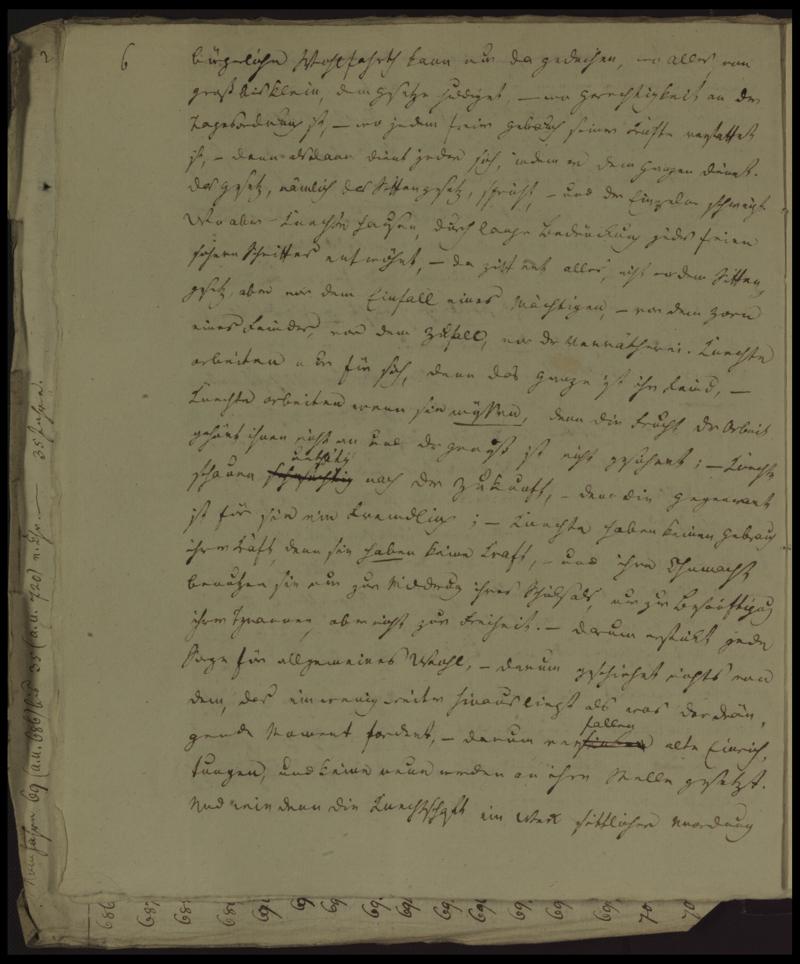 6
bürgerliche Wohlfahrth kann nur da gedeihen, wo alles von
groß bis klein, dem Gesetze huldiget, — wo Gerechtigkeit an der
Tagesordnung ist, — wo jedem freier Gebrauch seiner Kräfte verstattet
ist, — denn alsdann dient jeder sich, indem er dem Ganzen dienet.
Das Gesetz, nämlich das Sittengesetz, spricht, — und der Einzelne schweigt.
Wo aber Knechte hausen, durch lange Bedrückung jedes freien
höhern Schrittes entwöhnt, — da zittert alles, nicht vor dem Sitten,
gesetz, aber vor dem Einfall eines Mächtigen, — vor dem Zorn
eines Feindes, vor dem Zufall, vor der Verrätherei. Knechte
arbeiten nie für sich, denn das Ganze ist ihr Feind, —
Knechte arbeiten wenn sie müssen, denn die Frucht der Arbeit
gehört ihnen nicht an und der Genuß ist nicht gesichert; — Knechte
unthätig
schauen sehnsüchtig nach der Zukunft, — denn die Gegenwart
ist für sie ein Fremdling; — Knechte haben keinen Gebrauch
ihrer Kraft, denn sie haben keine Kraft, — und ihre Ohnmacht
benutzen sie nur zur Milderung ihres Schicksals, nur zur Besänftigung
ihrer Tyrannen, aber nicht zur Freiheit. — Darum erstickt jede
Sorge für allgemeines Wohl, — darum geschiehet nichts von
dem, das ein wenig weiter hinaus liegt als was der drän,
fallen
gende Moment fordert, — darum ver alte Einrich,
tungen, und keine neuen werden an ihre Stelle gesetzt.
Und wie denn die Knechtschaft ein Werk sittlicher Unordnung
69 (a.u. 686) bis 35 (a.u. 720) v. Chr. — 35 Jahre.
686 687 69 69 69 69 69 69 69 70 70